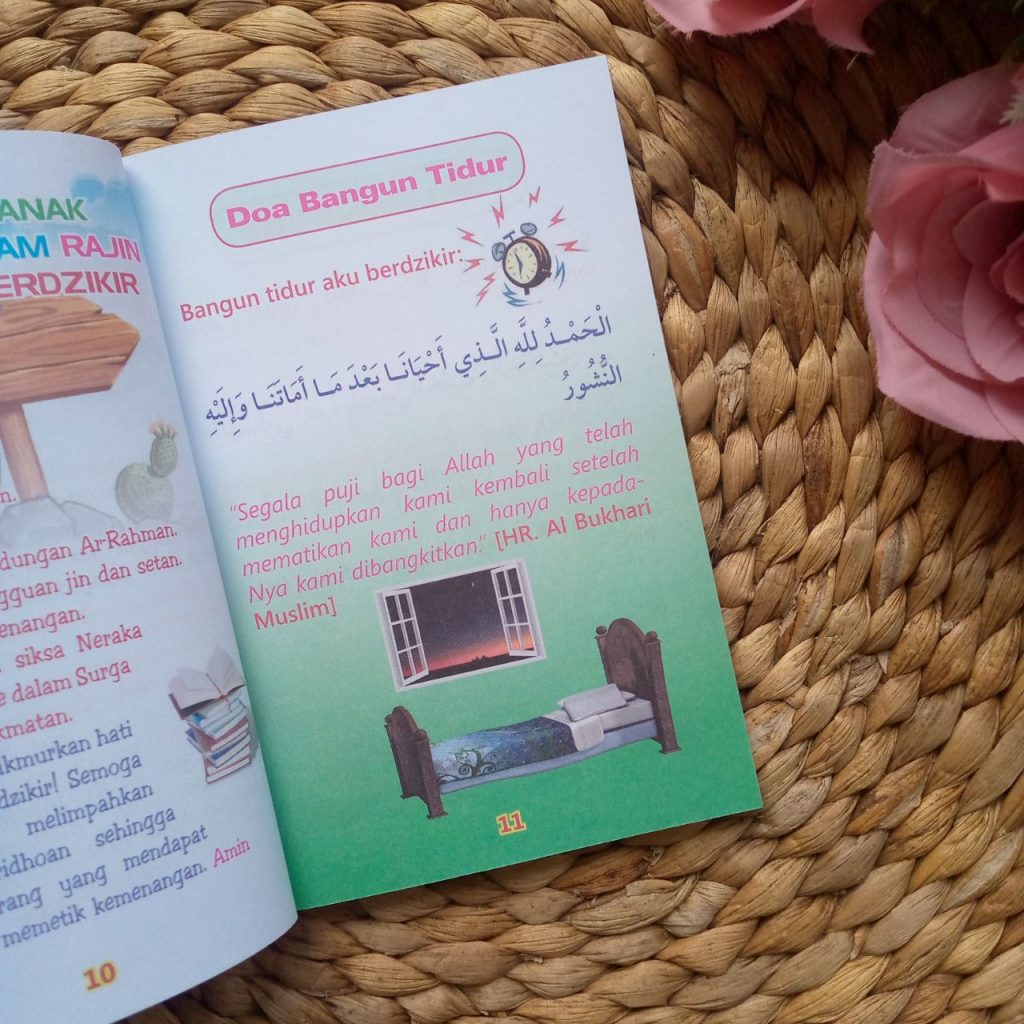 ANAK
RAJIN
Ar-Rahman.
jin dan setan.
siksa Neraka
dalam Surga
hati
Semoga
melimpahkan
sehingga
yang mendapat
memetik kemenangan. Amin
10
Doa Bangun Tidur
Bangun tidur aku berdzikir:
الْحَمْدُ لِلَّهِ الَّذِي أَحْيَانَا بَعْدَ مَا أَمَاتَنَا وَإِلَيْهِ
النُّشُورُ
"Segala puji bagi Allah yang telah
menghidupkan kami kembali setelah
mematikan kami dan hanya kepada-
Nya kami dibangkitkan." [HR. Al Bukhari
Muslim]
11